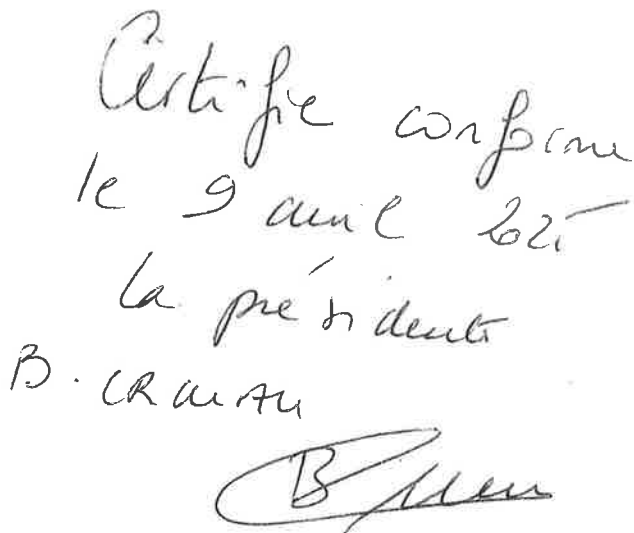 Certifie conforme
le 9 avril 2025
la présidente
B.